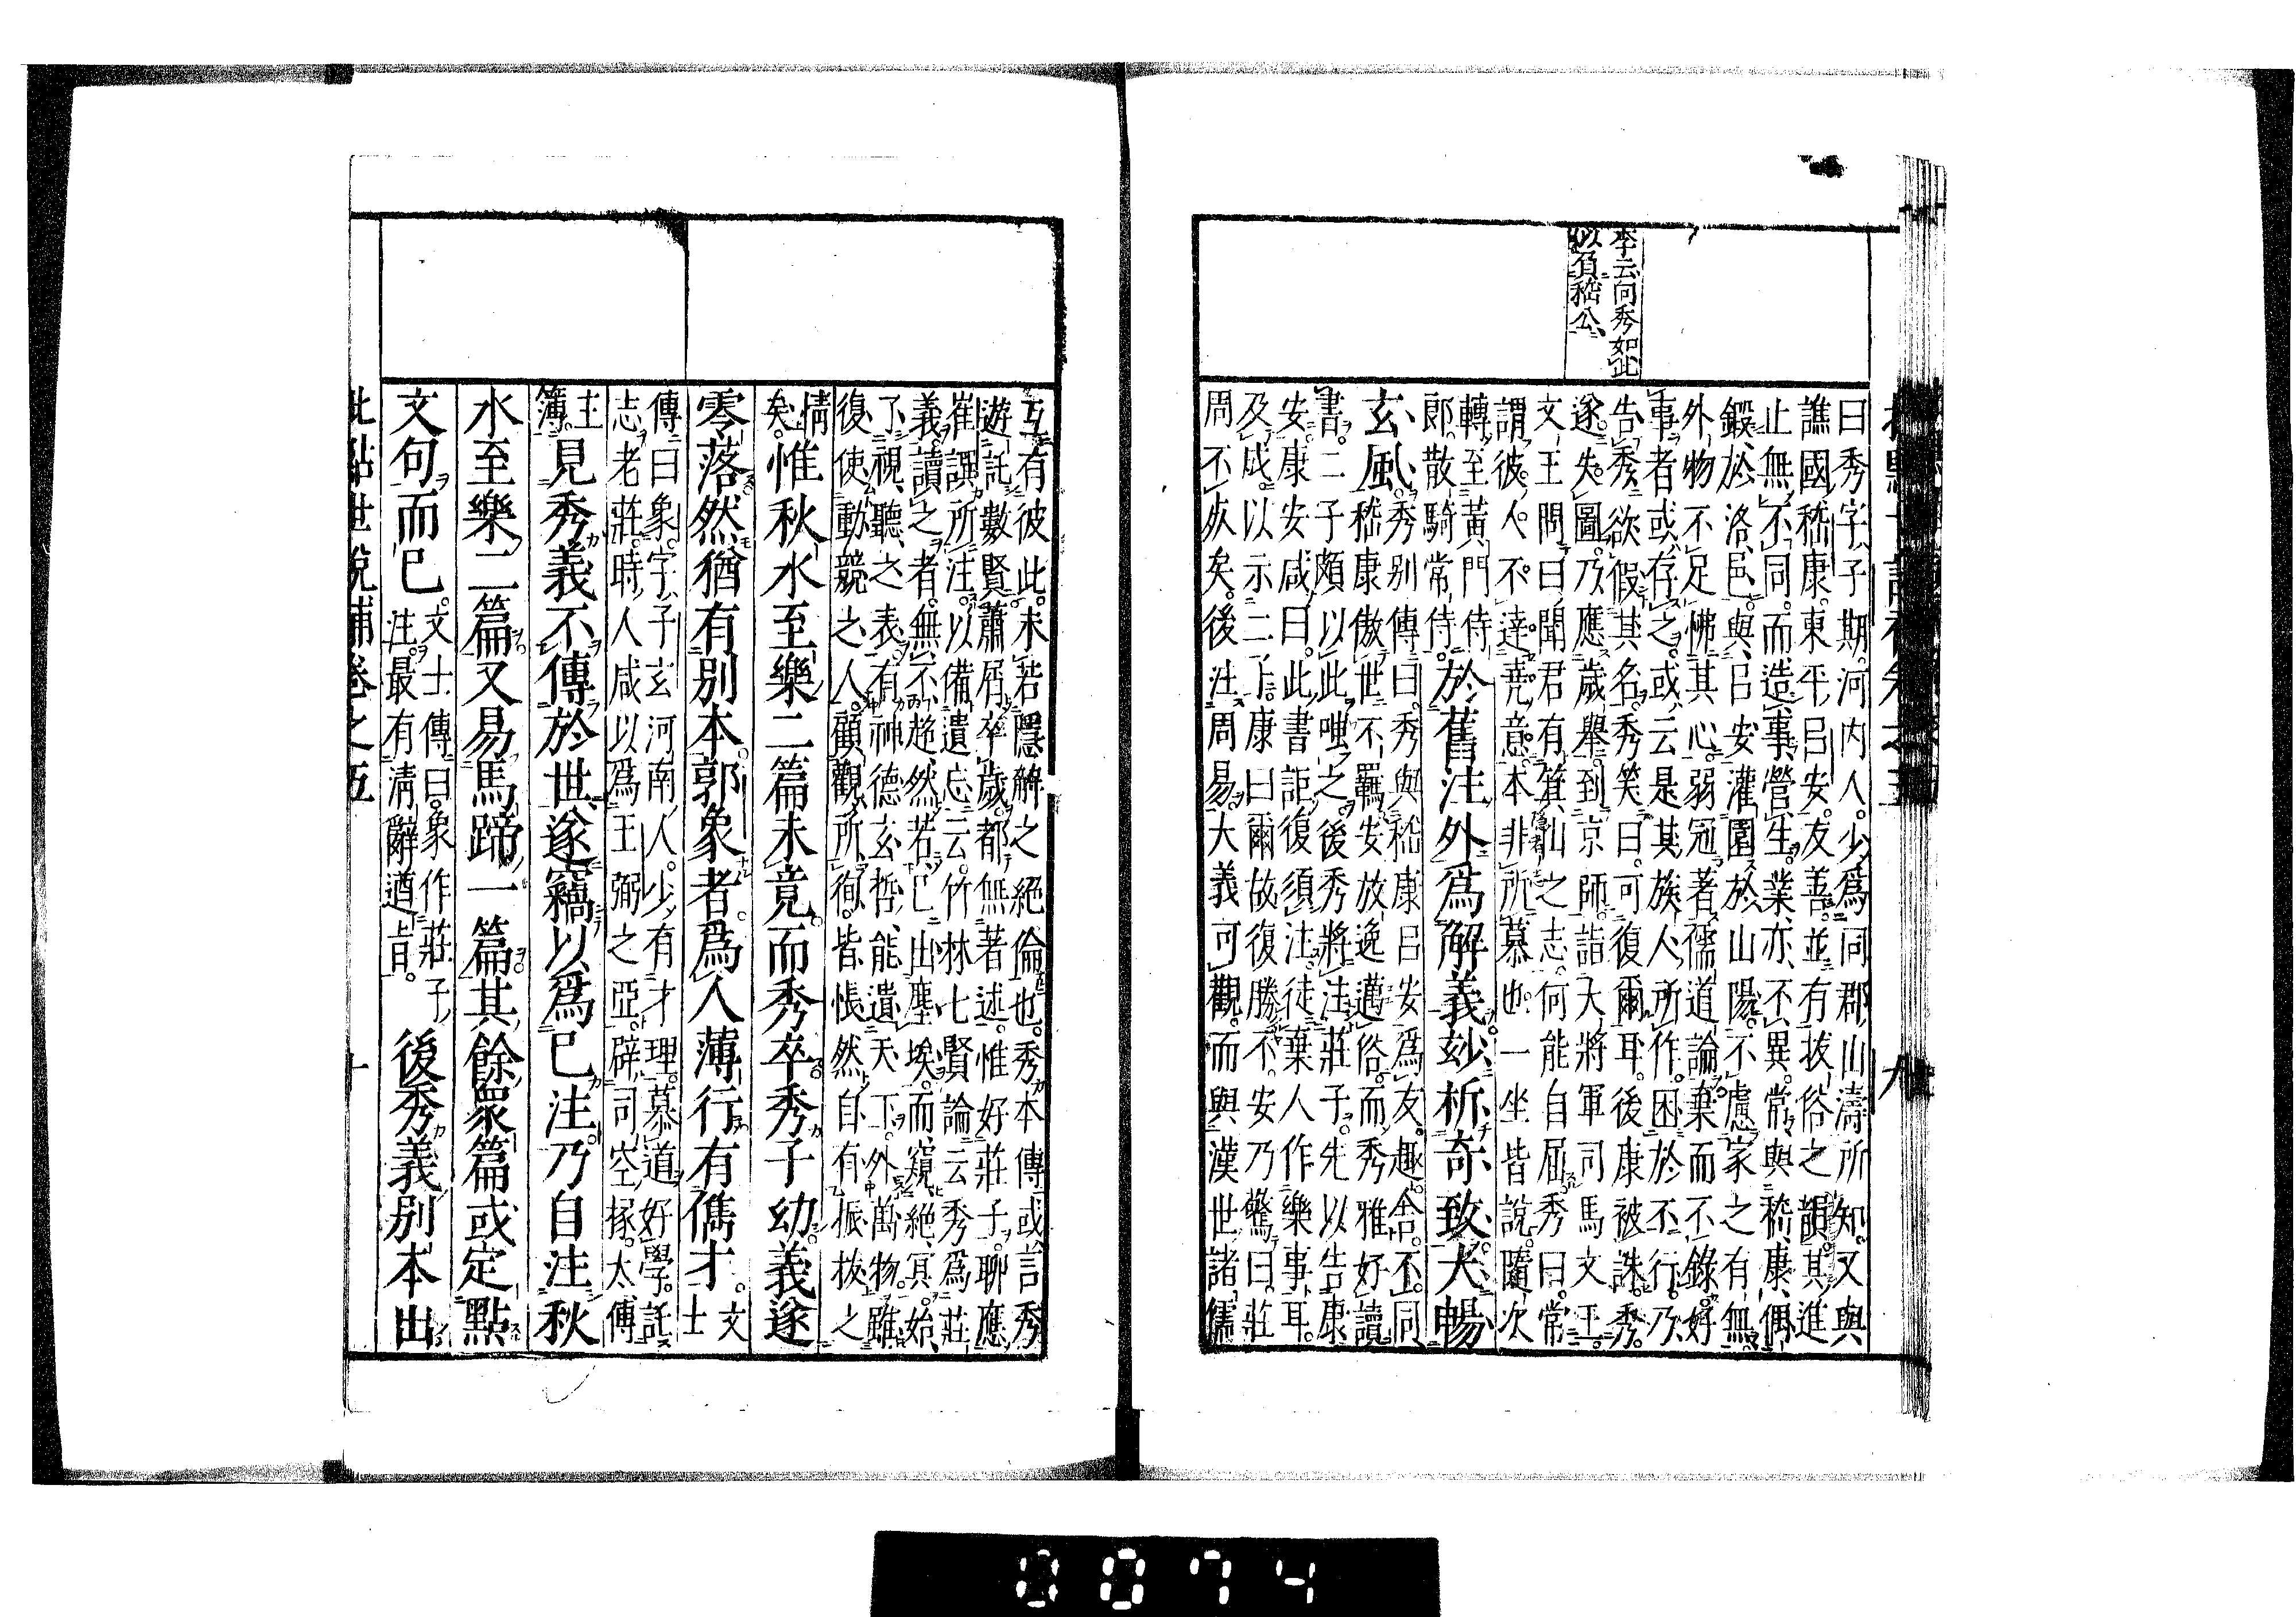 李云向秀如此
以負嵇公
曰秀字子期河内人少爲同郡山濤所知又與
譙國嵇康東平呂安友善並有拔俗之韻其進
止無不同而造事營生業亦不異常與嵇康偶
鍛於洛邑與呂安灌園於山陽不慮家之有無
外物不足怫其心弱冠著儒道論棄而不錄好
事者或存之或云是其族人所作困於不行乃
告秀欲假其名秀笑曰可復爾耳後康被誅秀
遂失圖乃應歲舉到京師詣大將軍司馬文王
文王問曰聞君有箕山之志何能自屈秀曰常
謂彼人不達堯意本非所慕也一坐皆說隨次
轉至黃門侍
郎散騎常侍
於舊注外爲解義妙析奇致大暢
玄風
秀別傳曰秀與嵇康呂安爲友趣舍不同
嵇康傲世不羈安放逸邁俗而秀雅好讀
書二子頗以此嗤之後秀將注莊子先以告康
安康安咸曰此書詎復須注徒棄人作樂事耳
及成以示二子康曰爾故復勝不安乃驚曰莊
周不死矣後注周易大義可觀而與漢世諸儒
互有彼此未若隱解之絕倫也秀本傳或言秀
遊託數賢蕭屑卒歲都無著述惟好莊子聊應
崔譔所注以備遺忘云竹林七賢論云秀爲莊
義讀之者無不超然若已出塵埃而窺絕冥始
了視聽之表有神德玄哲能遺天下外萬物雖
復使動競之人顧觀所徇皆悵然自有振拔之
情
矣
惟秋水至樂二篇未竟而秀卒秀子幼義遂
零落然猶有別本郭象者爲人薄行有儁才
文士
傳曰象字子玄河南人少有才理慕道好學託
志老莊時人咸以爲王弼之亞辟司空掾太傅
主
簿
見秀義不傳於世遂竊以爲己注乃自注秋
水至樂二篇又易馬蹄一篇其餘衆篇或定點
文句而已
文士傳曰象作莊子
注最有清辭遒旨
後秀義別本出
批點世說補卷之五
十